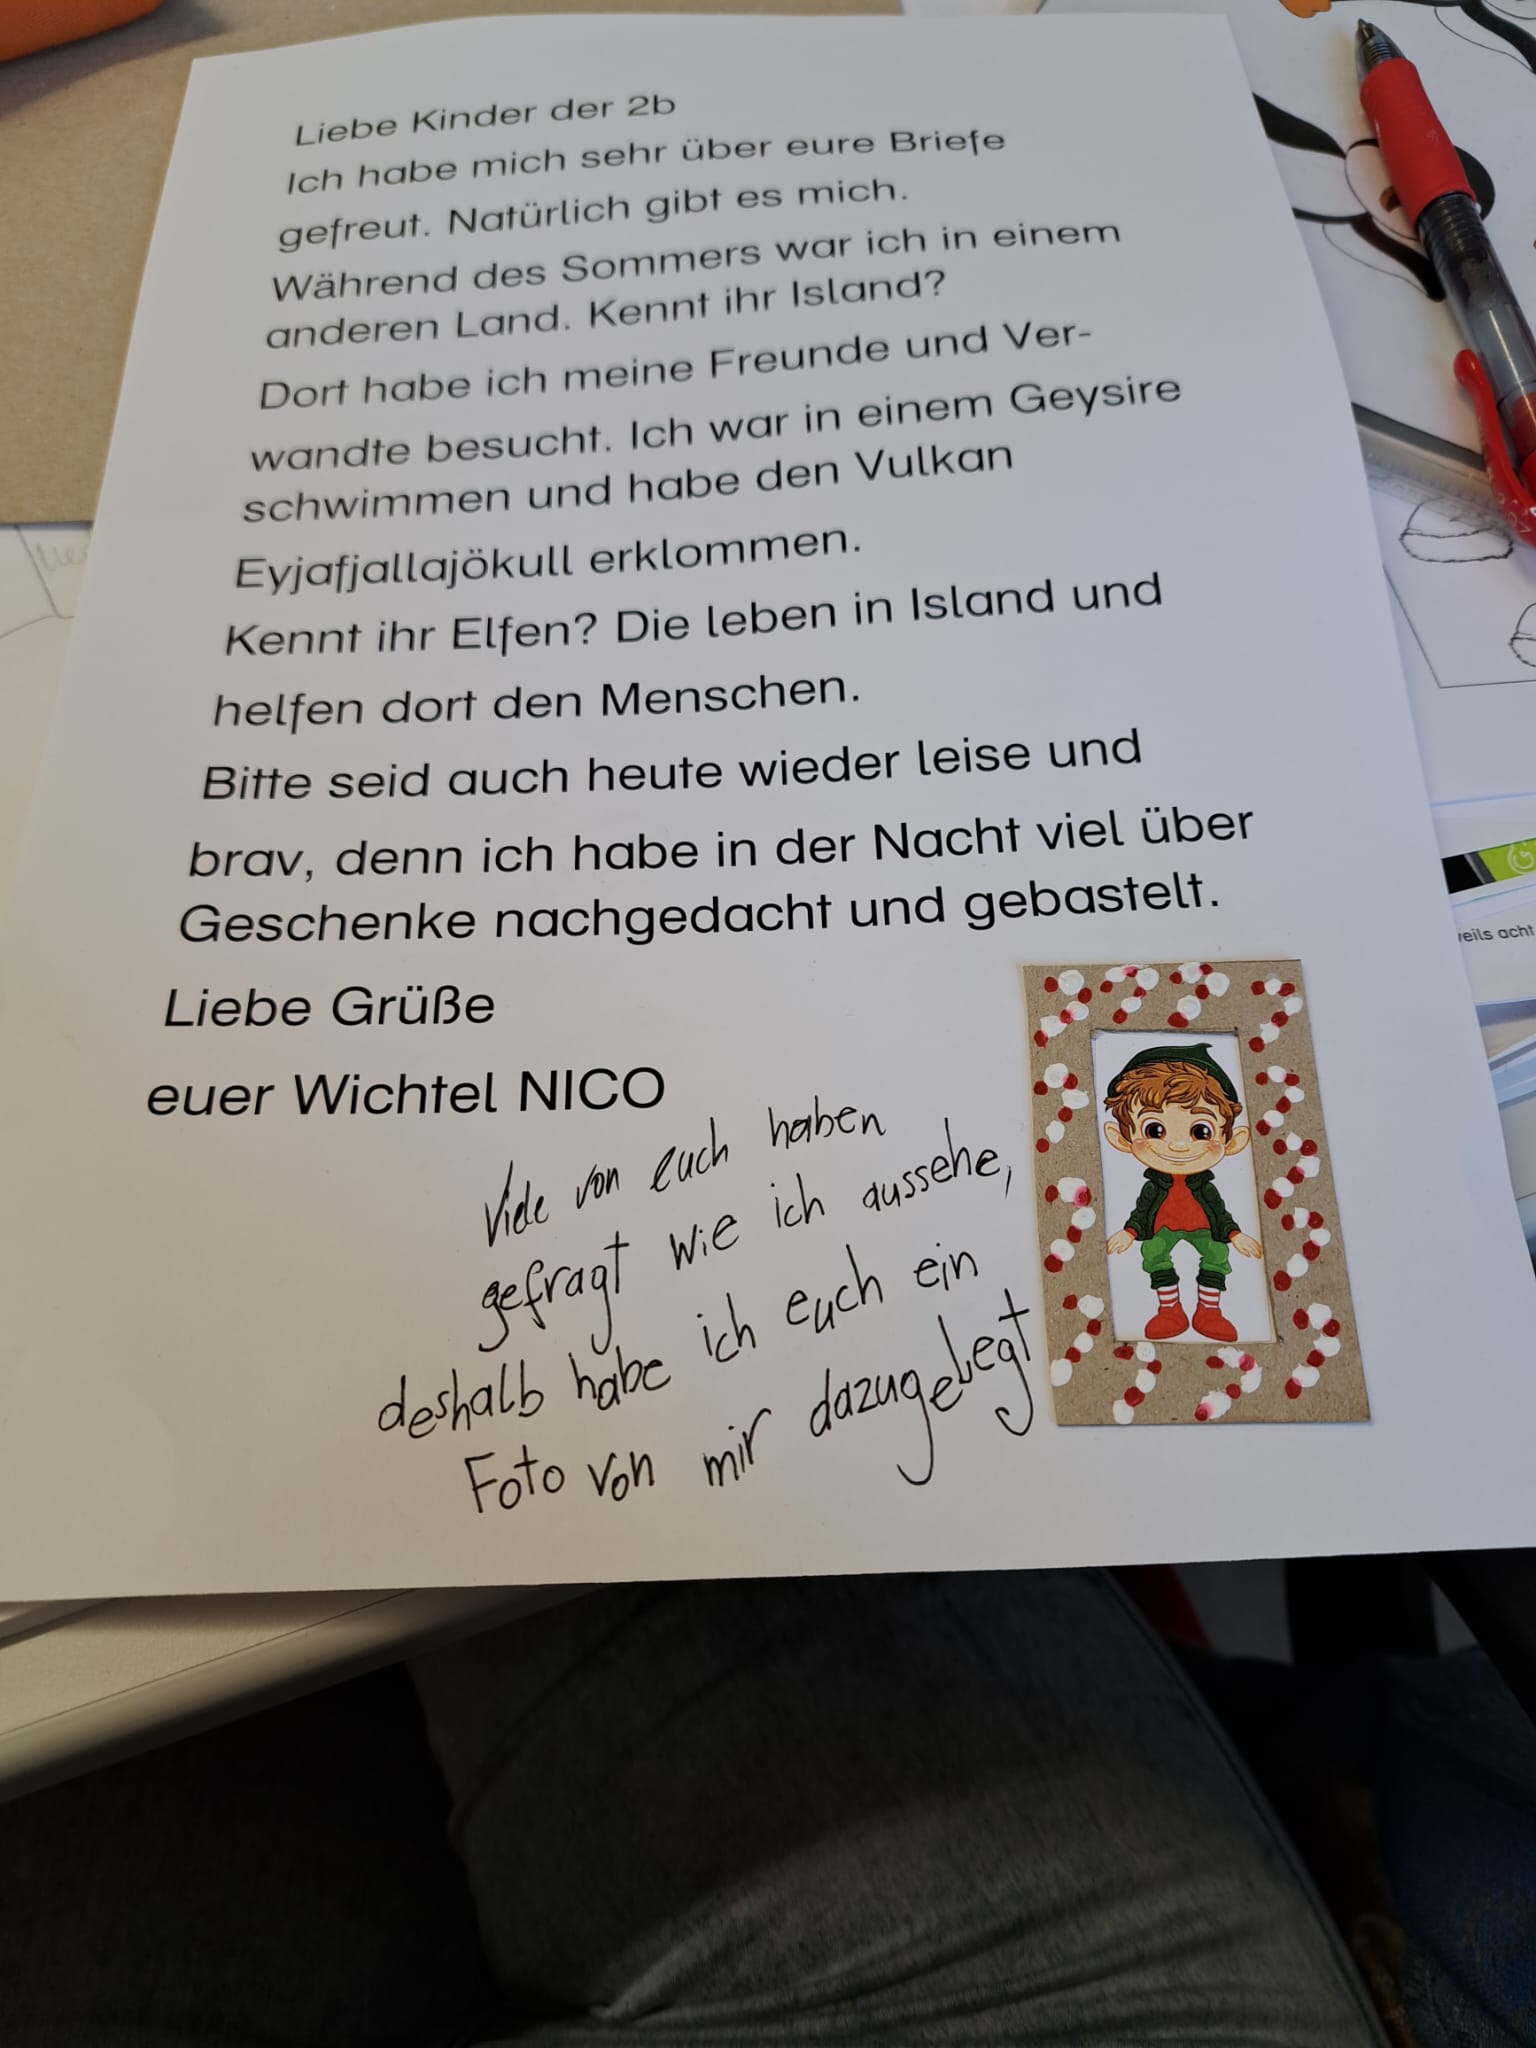 Liebe Kinder der 2b
Ich habe mich sehr über eure Briefe
gefreut. Natürlich gibt es mich.
Während des Sommers war ich in einem
anderen Land. Kennt ihr Island?
Dort habe ich meine Freunde und Ver-
wandte besucht. Ich war in einem Geysire
schwimmen und habe den Vulkan
Eyjafjallajökull erklommen.
Kennt ihr Elfen? Die leben in Island und
helfen dort den Menschen.
Bitte seid auch heute wieder leise und
brav, denn ich habe in der Nacht viel über
Geschenke nachgedacht und gebastelt.
Liebe Grüße
euer Wichtel NICO
Viele von euch haben
gefragt wie ich aussehe,
deshalb habe ich euch ein
Foto von mir dazugelegt
acht